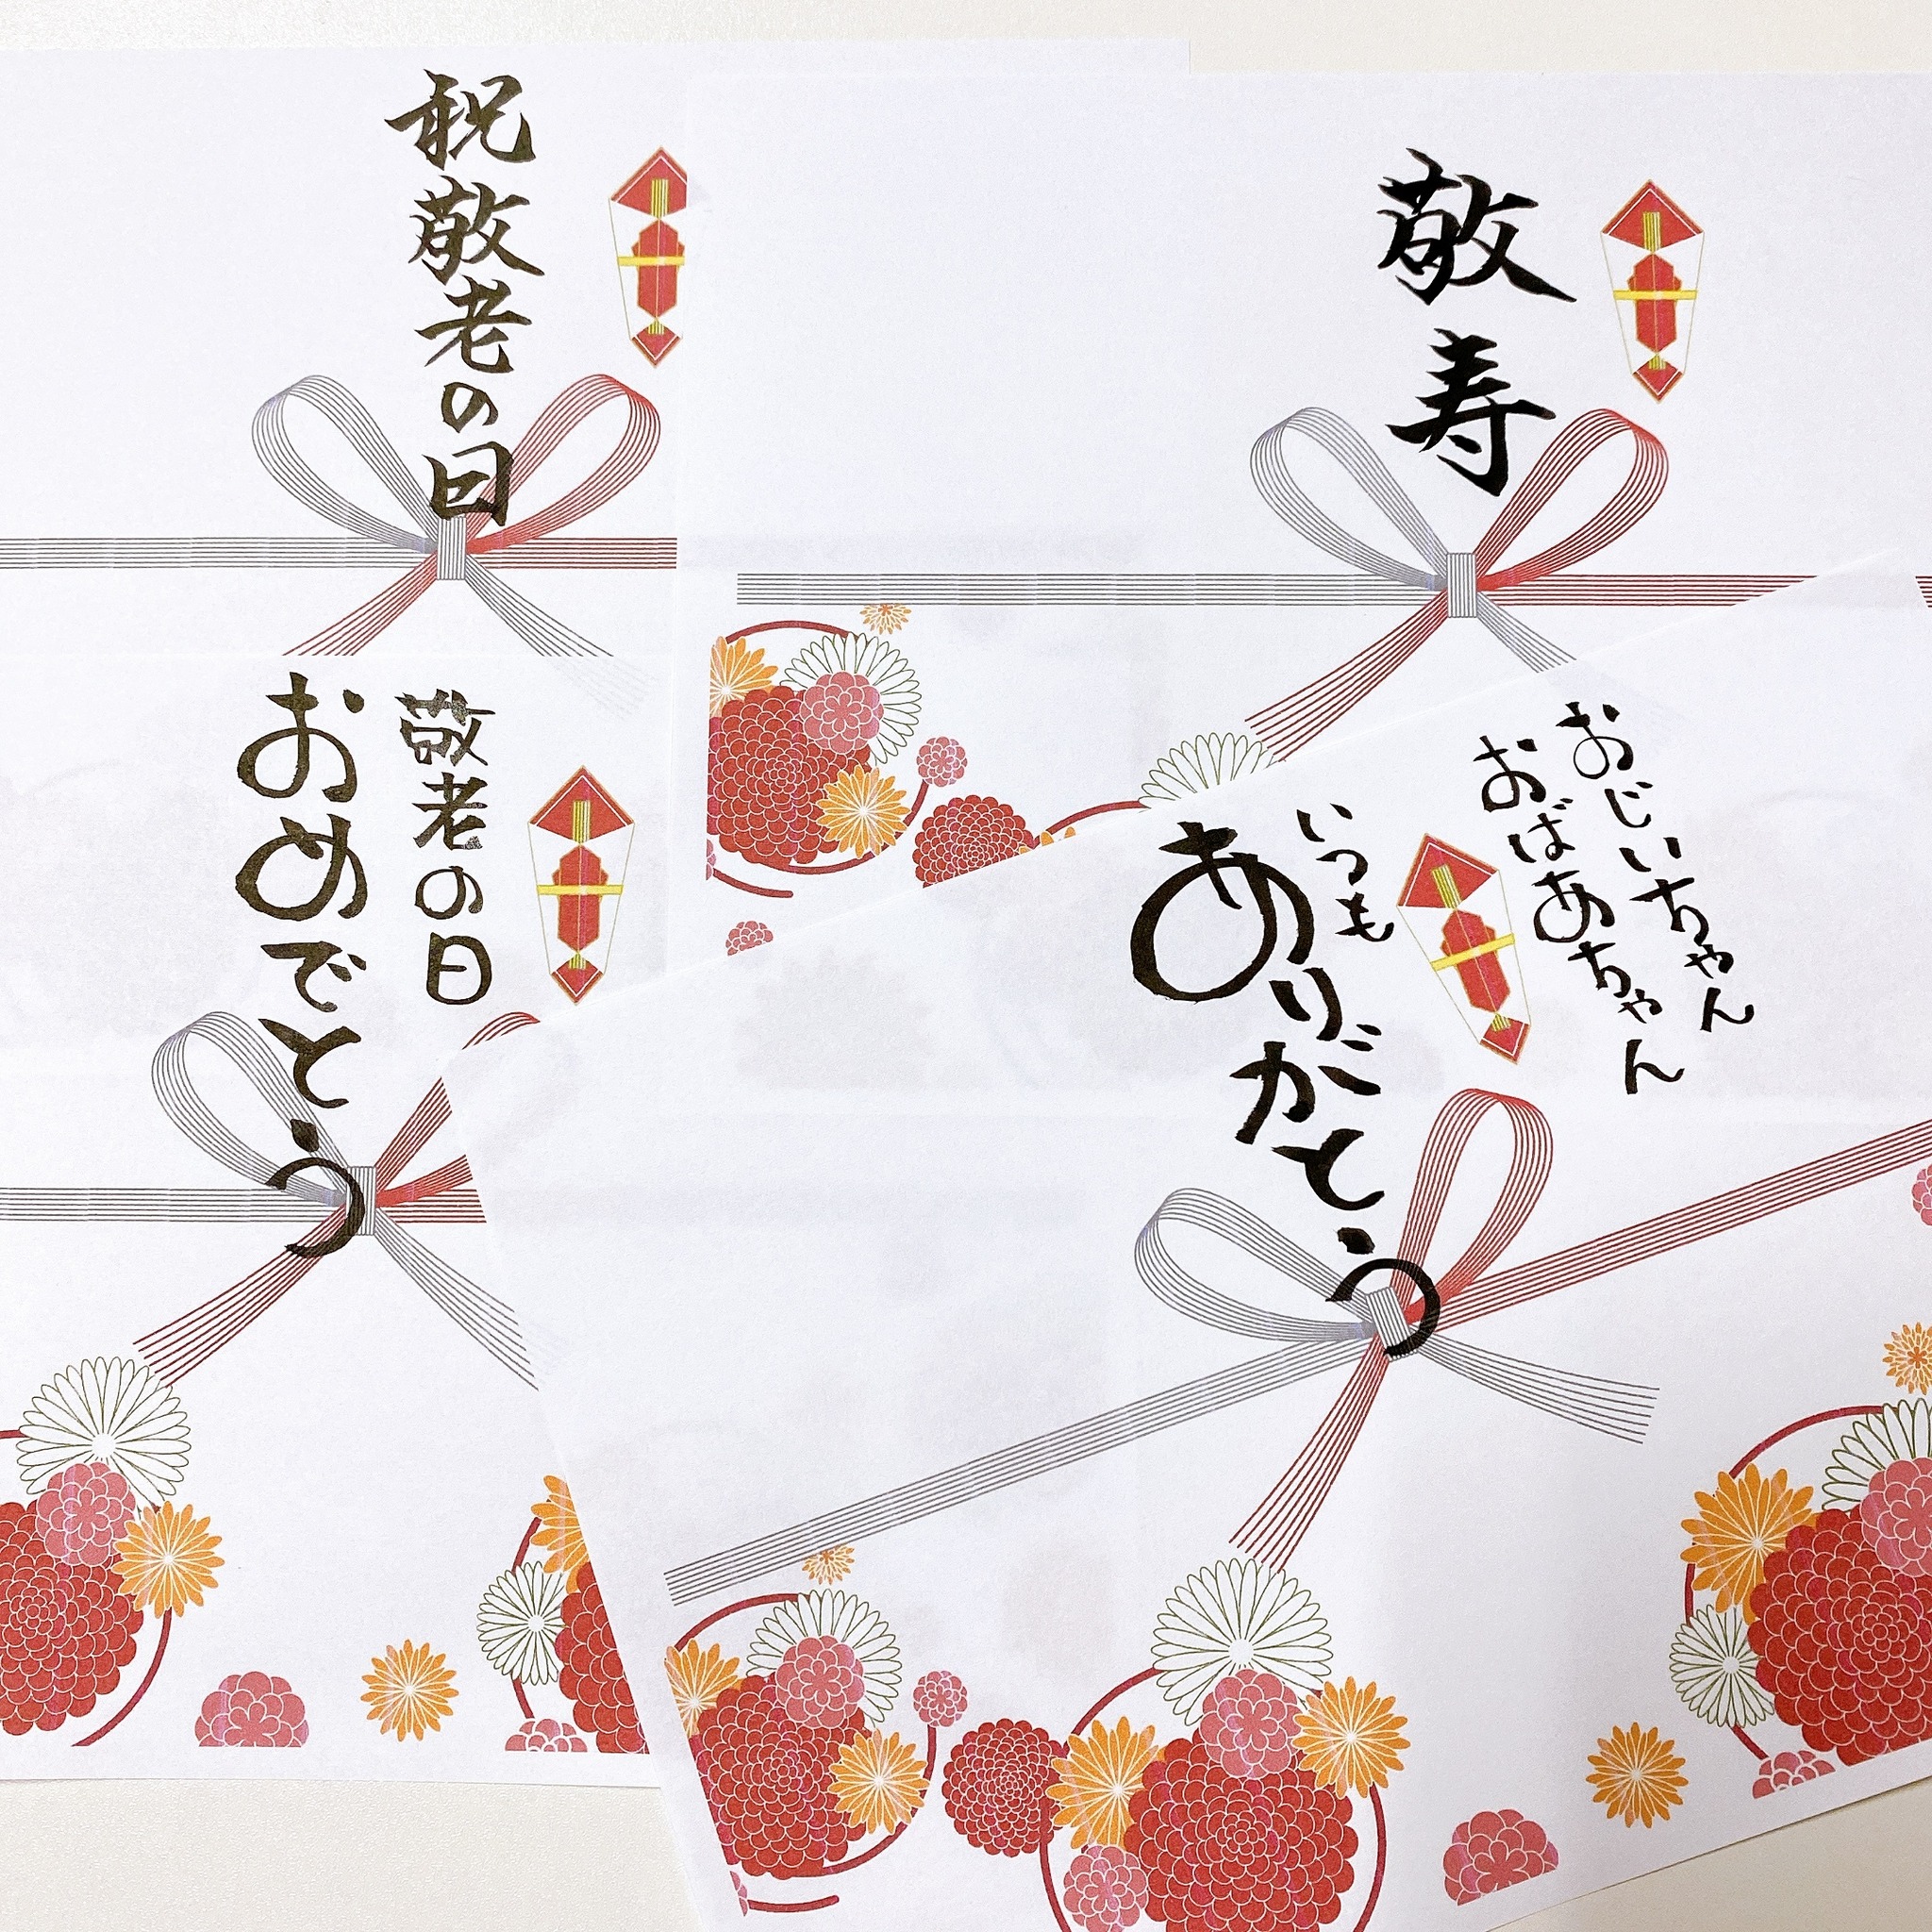 祝敬老の日
敬寿
敬老の日
おめでとう
おじいちゃん
おばあちゃん
いつも
ありがとう